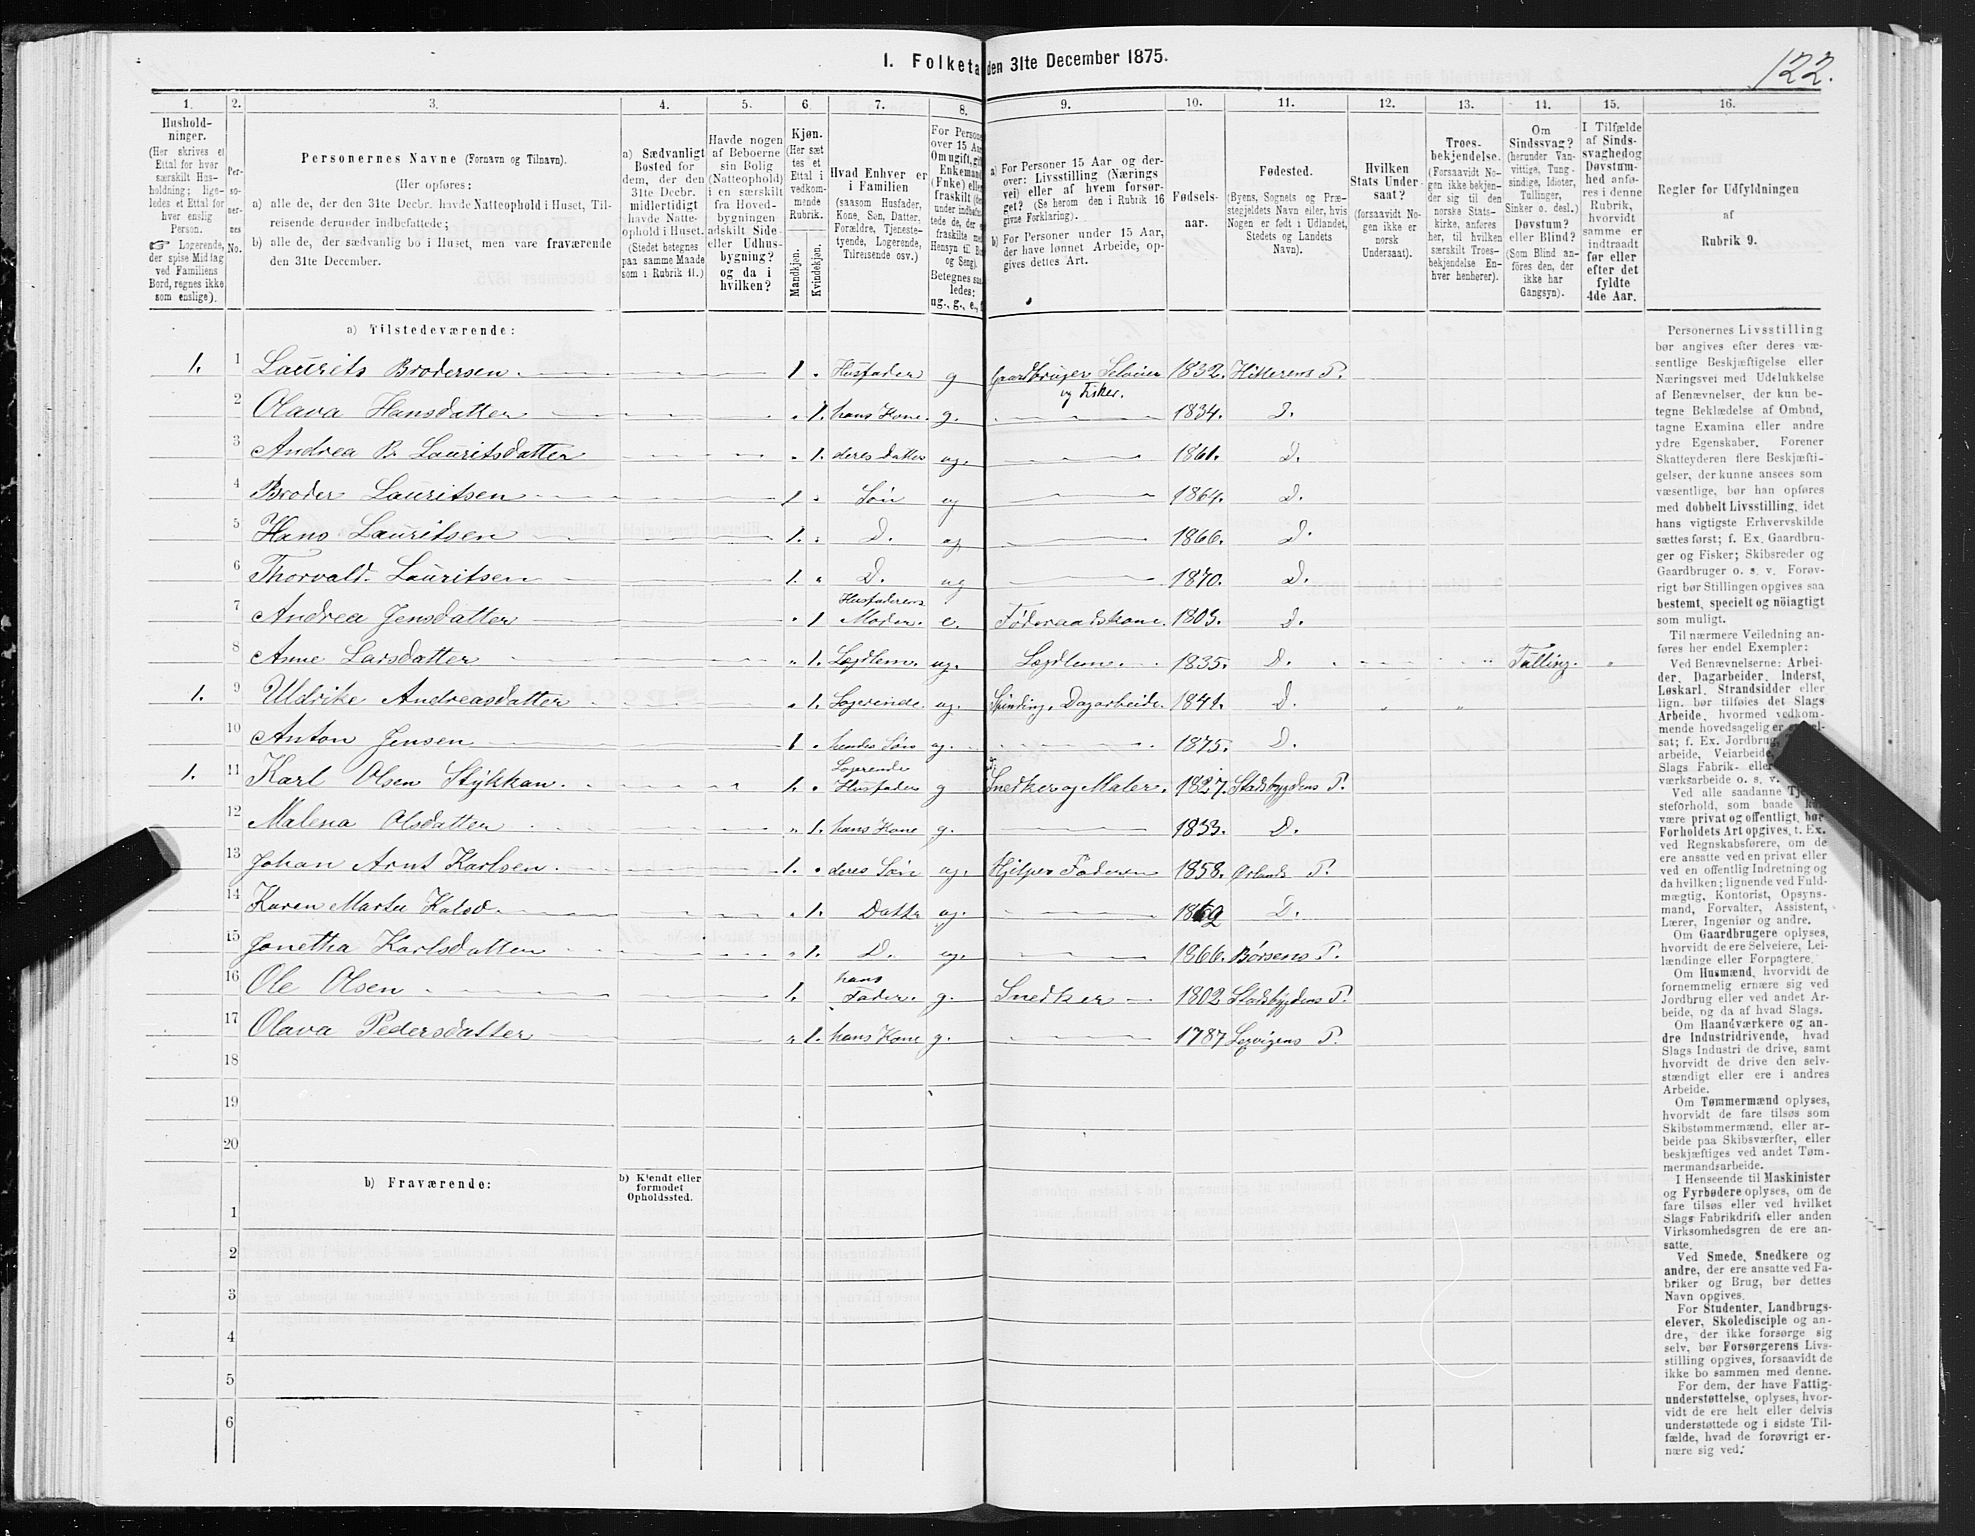 122.
I. Folketa den 31te December 1875.
1. 2. 3. 4. 5. 6. 7. 8. 9. 10. 11. 12. 13. 14. 15. 16.
Hushold-
ninger.
(Her skrives et
Ettal for hver
særskilt Hus-
holdning; lige-
ledes et Ettal for
hver enslig
Person.
☞ Logerende,
der spise Middag
ved Familiens
Bord, regnes ikke
som enslige).
Per-
so-
ner-
nes
No.
Personernes Navne (Fornavn og Tilnavn).
(Her opføres:
a) alle de, der den 31te Decbr. havde Natteophold i Huset, Til-
reisende derunder indbefattede;
b) alle de, der sædvanlig bo i Huset, men vare fraværende
den 31te December.
a) Sædvanligt
Bosted for
dem, der den
31te Decbr.
midlertidigt
havde Natte-
ophold i Huset.
(Stedet betegnes
paa samme Maade
som i Rubrik 11.)
Havde nogen
af Beboerne
sin Bolig
(Natteophold)
i en særskilt
fra Hoved-
bygningen
adskilt Side-
eller Udhus-
bygning?
og da i
hvilken?
Kjøn.
(Her sæt
tes et
Ettal i
vedkom-
mende
Rubrik.
Mandkjøn.
Kvindekjøn.
Hvad Enhver er
i Familien
(saasom Husfader,
Kone, Søn, Datter,
Forældre, Tjeneste-
tyende, Logerende,
Tilreisende osv.)
For Persone
over 15 Aar
Om ugift, gift
Enkemand
(Enke) elle
fraskilt
Betegnes saa
ledes:
ug., g., e.,
a) For Personer 15 Aar og der-
over: Livsstilling (Nærings
vei) eller af hvem forsør-
get? (Se herom den i Rubrik 16
givne Forklaring).
b) For Personer under 15 Aar,
der have lønnet Arbeide, op-
gives dettes Art.
Fødsels-
aar.
Fødested.
(Byens, Sognets og Præ-
stegjeldets Navn eller, hvis
Nogen er født i Udlandet,
Stedets og Landets
Navn).
Hvilken
Stats Under-
saat?
(forsaavidt No-
gen ikke er
norsk
Undersaat).
Troes-
bekjendelse.
(Forsaavidt No-
gen ikke bekjen-
der sig til den
norske Stats-
kirke, anføres
her, til hvilken
særskilt Troes-
bekjendelse En-
hver henhører).
Om
Sindssvag?
(herunder Van-
vittige, Tung-
sindige, Idioter,
Tullinger,
Sinker o. desl.)
Døvstum?
eller Blind?
(Som Blind an-
føres den, der
ikke har
Gangsyn).
I Tilfælde
af Sinds-
svaghed og
Døvstum-
hed anfø-
res i denne
Rubrik,
hvorvidt
samme er
indtraadt
før eller
efter det
fyldte
4de Aar.
Regler for Udfyldningen
af
Rubrik 9.
a) Tilstedeværende:
1. 1 Laurits Brodersen 1 Husfader g Gaardbruger Selveier og Fisker. 1832. Hitterens P.
2 Olava Hansdatter 1. hans Kone. g. 1834. D.
3 Andrea B. Lauritsdatter 1. deres datter ug. 1861. D.
4 Broder Lauritsen 1 Søn ug 1864. D.
5 Hans Lauritsen 1. D. ug 1866. D.
6 Thorvald Lauritsen 1. D. ug 1870. D.
7 Andrea Jensdatter 1 Husfaderens Moder. e. Føderaadskone. 1803. D.
8 Anne Larsdatter 1. Lægdlem. ug. Lægdlem. 1835. D. Tulling.
1. 9 Uldrike Andreasdatter 1. Logerende. ug. Spinding, Dagarbeide. 1841. D.
10 Anton Jensen 1 hendes Søn ug. 1875. D.
1. 11 Karl Olsen Stykkan. 1. Logerende Husfader g Snedker og Maler. 1827. Stadsbygdens P.
12 Malena Olsdatter 1. hans Kone g. 1833. D.
13 Johan Arnt Karlsen. 1. deres Søn ug. Hjelper Faderen 1858. Ørlands P.
14 Karen Marta Kalsd. 1. Datte ug. D.
15 Jonetha Karlsdatter 1. D. ug. 1866. Børsens P.
16 Ole Olsen 1. hans Fader. g. Snedker 1802 Stadsbygdens P.
17 Olava Pedersdatter 1. hans Kone g. 1787 Lexvigens P.
18
19
20
b) Fraværende:
b) Kjendt eller
formodet
Opholdssted.
1
2
3
4
5
6
Personernes Livsstilling
bør angives efter deres væ-
sentlige Beskjæftigelse eller
Næringsvei med Udelukkelse
af Benævnelser, der kun be-
tegne Beklædelse af Ombud,
tagne Examina eller andre
ydre Egenskaber. Forener
Skatteyderen flere Beskjæfti-
gelser, der kunne ansees som
væsentlige, bør han opføres
med dobbelt Livsstilling, idet
hans vigtigste Erhvervskilde
sættes først; f. Ex. Gaardbru-
ger og Fisker; Skibsreder og
Gaardbruger o. s. v. Forøv-
rigt bør Stillingen opgives saa
bestemt, specielt og nöiagtigt
som muligt.
Til nærmere Veiledning an-
føres her endel Exempler:
Ved Benævnelserne: Arbei-
der, Dagarbeider, Inderst,
Løskarl, Strandsidder eller
lign. bør tilføies det Slags
Arbeide, hvormed vedkom-
mende hovedsagelig er
sat; f. Ex. Jordbrug,
arbeide, Veiarbeide,
Slags Fabrik- eller
værksarbeide o. s. v.
Ved alle saadanne
steforhold, som baade
være privat og offentligt, bør
Forholdets Art opgives, t. Ex.
ved Regnskabsførere, om de
ere ansatte ved en privat eller
ved en offentlig Indretning og
da hvilken; lignende ved Fuld-
mægtig, Kontorist, Opsyns-
mand, Forvalter, Assistent,
Lærer, Ingeniør og andre.
Om Gaardbrugere oplyses,
hvorvidt de ere Selveiere, Lei-
lændinge eller Forpagtere.
Om Husmænd, hvorvidt de
fornemmelig ernære sig ved
Jordbrug eller ved andet Ar-
beide, og da af hvad Slags.
Om Haandværkere og an-
dre Industridrivende, hvad
Slags Industri de drive, samt
hvorvidt de drive den selv-
stændigt eller ere i andres
Arbeide.
Om Tømmermænd oplyses,
hvorvidt de fare tilsøs som
Skibstømmermænd, eller ar-
beide paa Skibsværfter, eller
beskjæftiges ved andet Tøm-
mermandsarbeide.
I Henseende til Maskinister
og Fyrbødere oplyses, om de
fare tilsøs eller ved hvilket
Slags Fabrikdrift eller anden
Virksomhedsgren de ere an-
satte.
Ved Smede, Snedkere og
andre, der ere ansatte ved Fa-
briker og Brug, bør dettes
Navn opgives.
For Studenter, Landbrugs-
elever, Skoledisciple og an-
dre, der ikke forsørge sig
selv, bør Forsørgerens Livs-
stilling opgives, forsaavidt de
ikke bo sammen med denne.
For dem, der have Fattig-
understøttelse, oplyses, hvor-
vidt de ere helt eller delvis
understøttede og i sidste Til-
fælde, hvad de forøvrigt er-
nære sig ved.